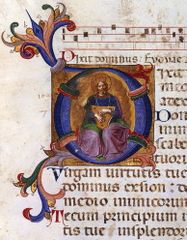 Dixit dominus: Euoue
D
Uirgam uirtutis tue
dominus exsion: do
medio inimicorum
Tecum principium
tis tue in splen